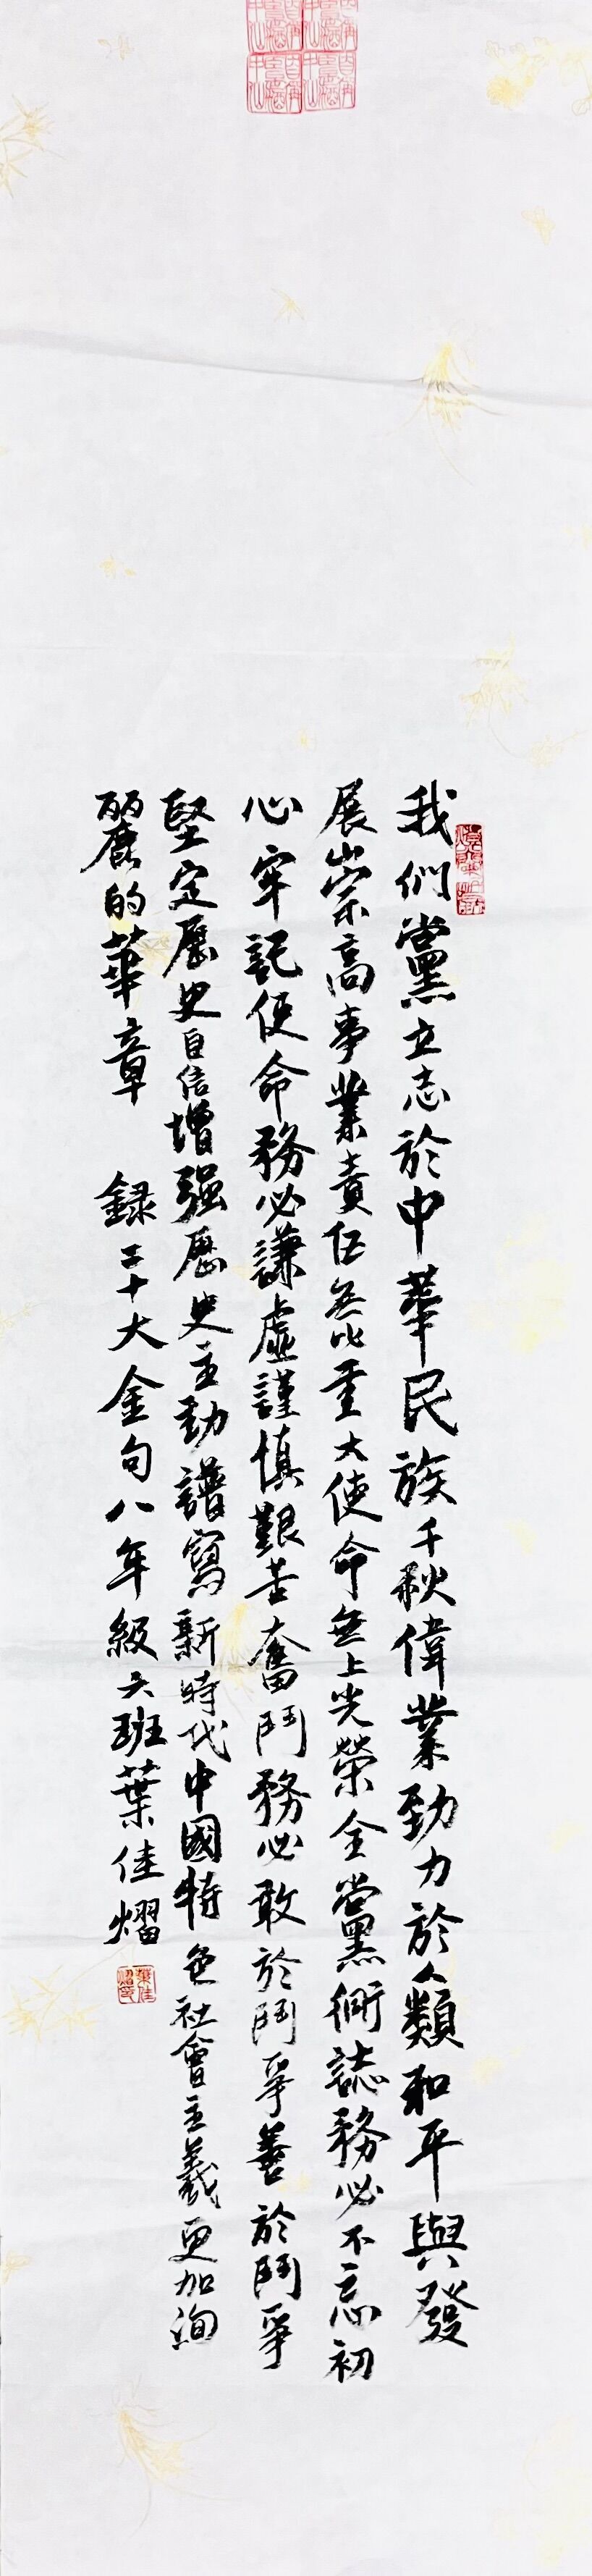 我們黨立志於中華民族千秋偉業勁力於人類和平與發
展崇高事業責任無比重大使命無上光榮全黨衕誌務必不忘初
心牢記使命務必謙虛謹慎艱苦奮鬥務必敢於鬥爭善於鬥爭
堅定歷史自信增强歷史主動譜寫新時代中國特色社會主義更加洵
麗的華章 録二十大金句八年級六班葉佳熠
葉佳